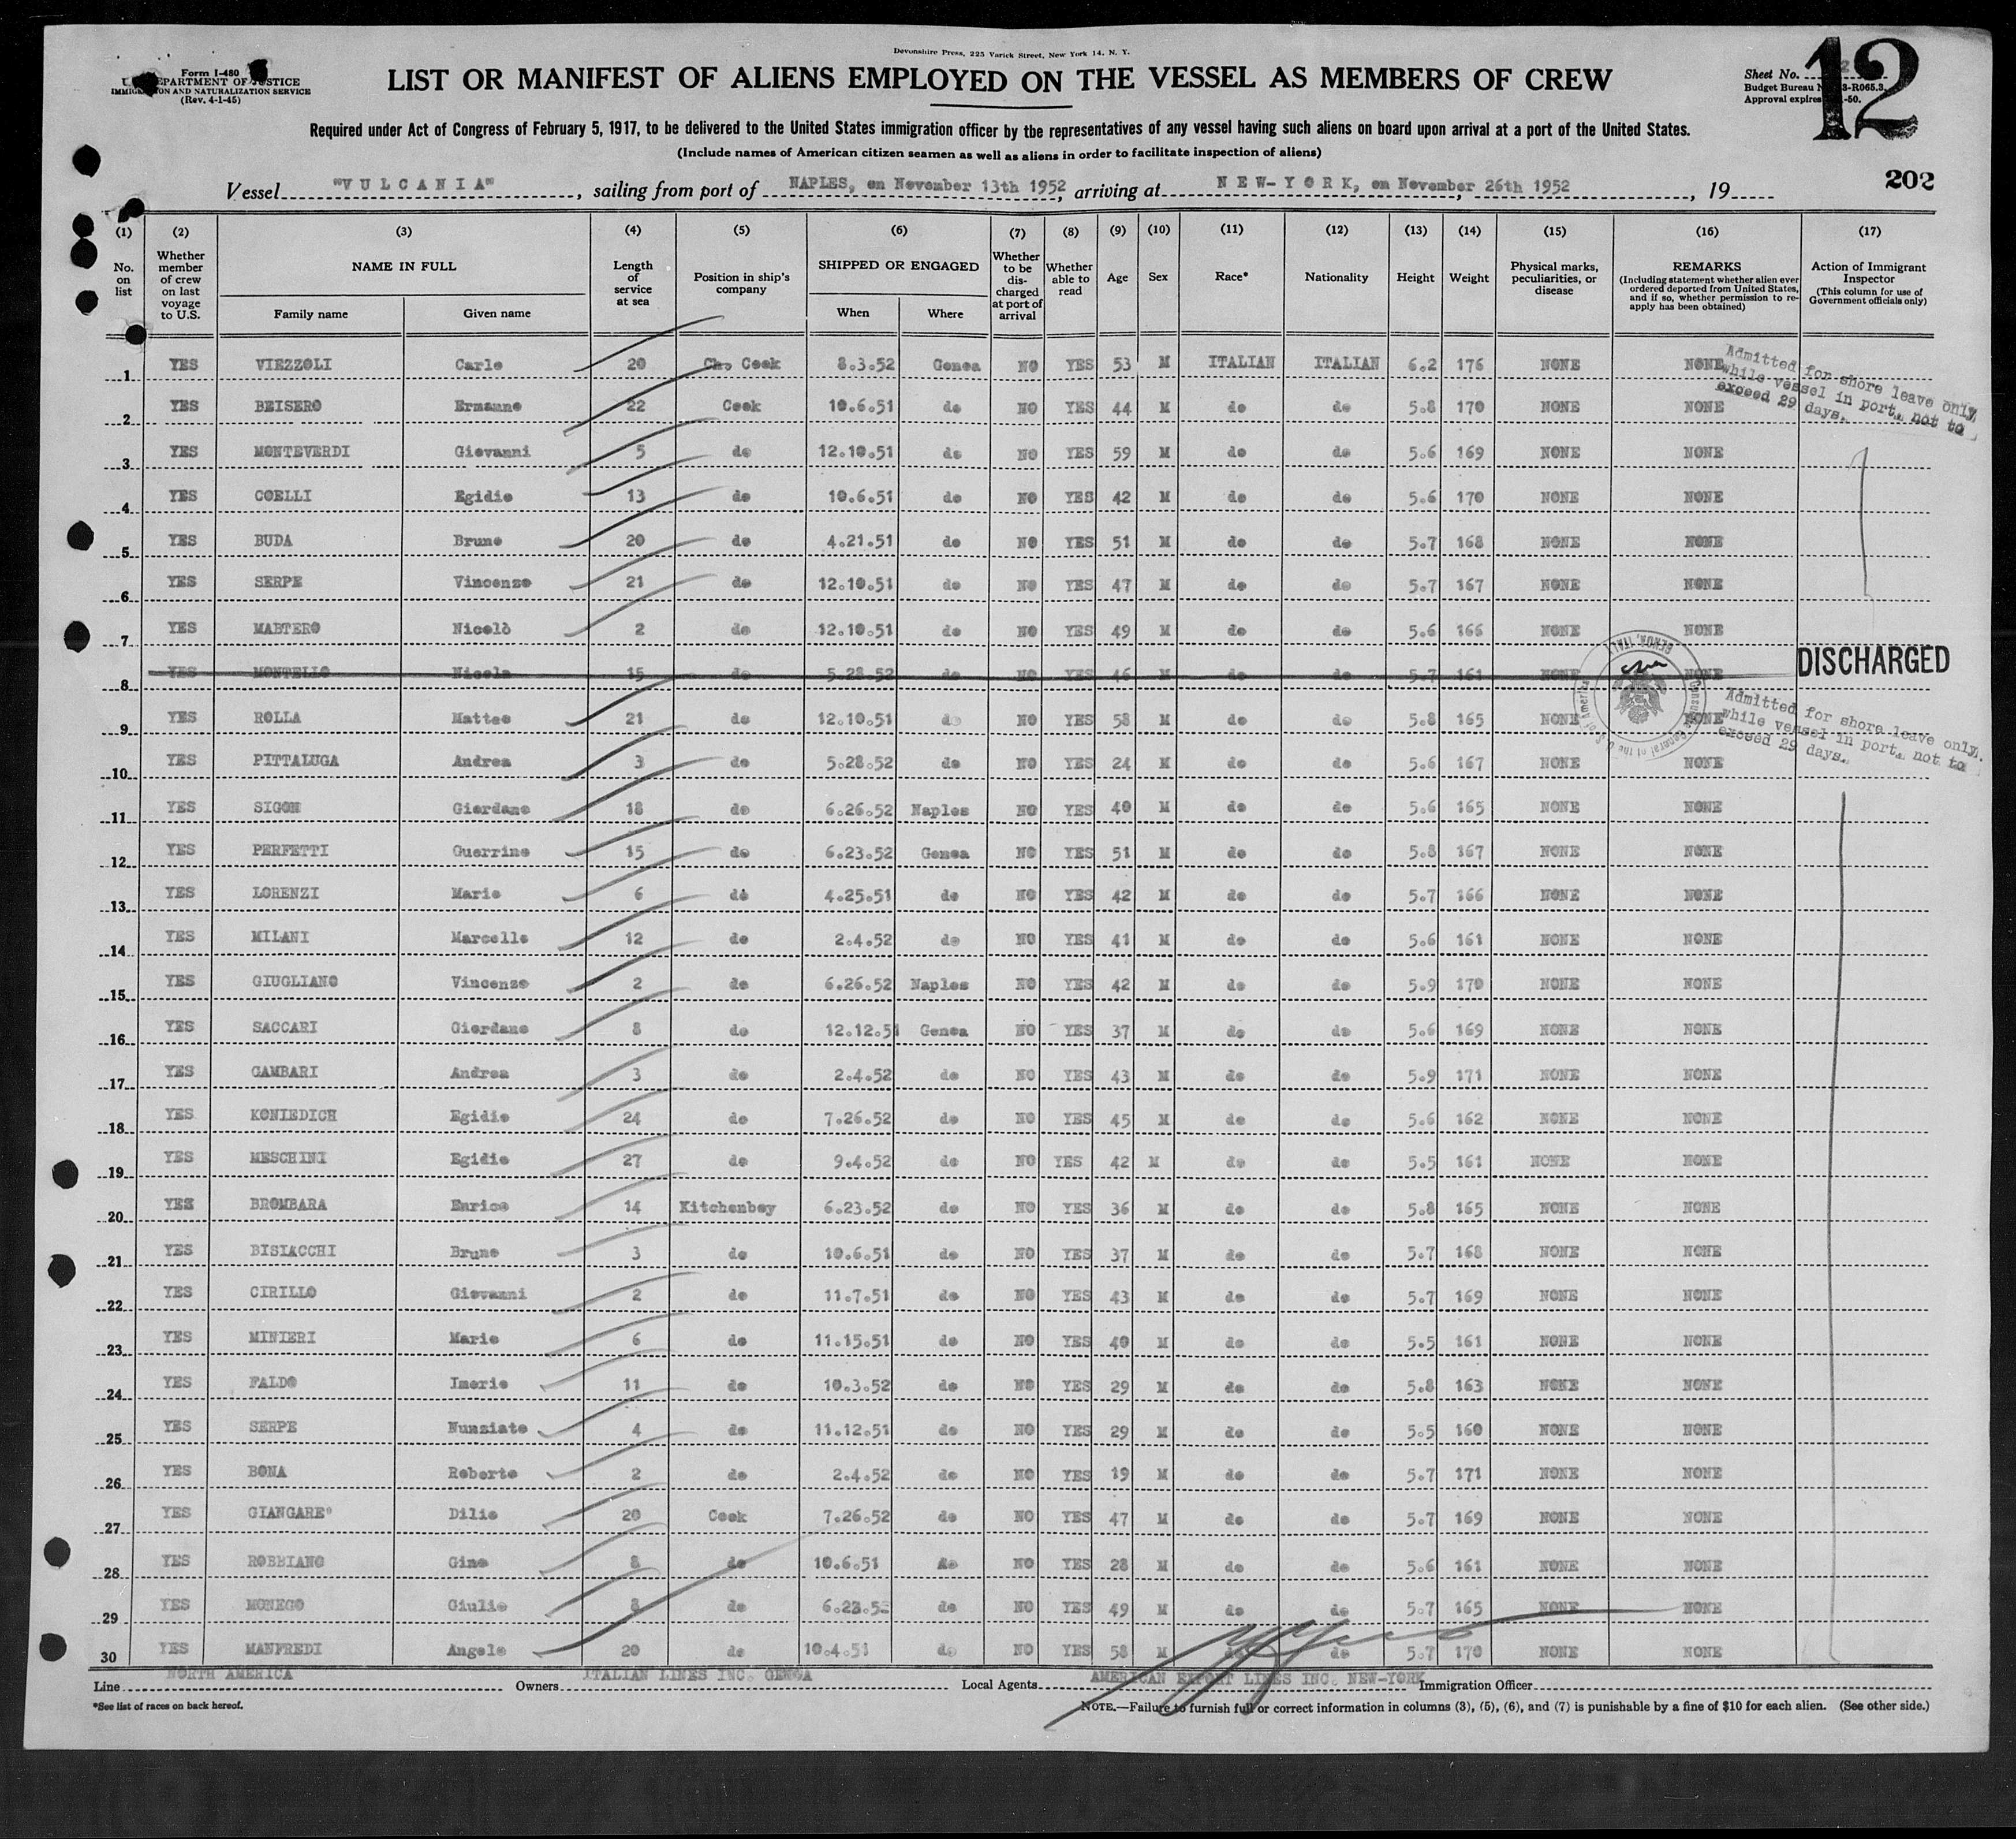 Devonshire Press, 225 Varick Street, New York 14, N. Y.
Form I-480
DEPARTMENT OF JUSTICE
IMMIGRATION AND NATURALIZATION SERVICE
(Rev. 4-1-45)
LIST OR MANIFEST OF ALIENS EMPLOYED ON THE VESSEL AS MEMBERS OF CREW
Sheet No.
Budget Bureau
Approval expires
12
Required under Act of Congress of February 5, 1917, to be delivered to the United States immigration officer by the representatives of any vessel having such aliens on board upon arrival at a port of the United States.
(Include names of American citizen seamen as well as aliens in order to facilitate inspection of aliens)
202
Vessel "VULCANIA", sailing from port of NAPLES, on November 13th 1952, arriving at NEW-YORK, on November 26th 1952, 19
(1) No. on list (2) Whether member of crew on last voyage to U.S. (3) NAME IN FULL Family name Given name (4) Length of service at sea (5) Position in ship's company (6) SHIPPED OR ENGAGED When Where (7) Whether to be discharged at port of arrival (8) Whether able to read (9) Age (10) Sex (11) Race* (12) Nationality (13) Height (14) Weight (15) Physical marks, peculiarities, or disease (16) REMARKS (Including statement whether alien ever ordered deported from United States, and if so, whether permission to reapply has been obtained) (17) Action of Immigrant Inspector (This column for use of Government officials only)
1 YES VIEZZOLI Carlo 20 Ch. Cook 8.3.52 Genoa NO YES 53 M ITALIAN ITALIAN 6.2 176 NONE NONE
Admitted for shore leave only, while vessel in port, not to exceed 29 days.
2 YES BEISERO Ermanno 22 Cook 10.6.51 do NO YES 44 M do do 5.8 170 NONE NONE
3 YES MONTEVERDI Giovanni 5 do 12.10.51 do NO YES 59 M do do 5.6 169 NONE NONE
4 YES COELLI Egidio 13 do 10.6.51 do NO YES 42 M do do 5.6 170 NONE NONE
5 YES BUDA Bruno 20 do 4.21.51 do NO YES 51 M do do 5.7 168 NONE NONE
6 YES SERPE Vincenzo 21 do 12.10.51 do NO YES 47 M do do 5.7 167 NONE NONE
7 YES MABTERO Nicolò 2 do 12.10.51 do NO YES 49 M do do 5.6 166 NONE NONE
8 YES MONTELLO Nicola 15 do 5.28.52 do NO YES 46 M do do 5.7 161 NONE NONE DISCHARGED
9 YES ROLLA Matteo 21 do 12.10.51 do NO YES 58 M do do 5.8 165 NONE NONE
Admitted for shore leave only, while vessel in port, not to exceed 29 days.
10 YES PITTALUGA Andrea 3 do 5.28.52 do NO YES 24 M do do 5.6 167 NONE NONE
11 YES SIGON Giordano 18 do 6.26.52 Naples NO YES 40 M do do 5.6 165 NONE NONE
12 YES PERFETTI Guerrino 15 do 6.23.52 Genoa NO YES 51 M do do 5.8 167 NONE NONE
13 YES LORENZI Mario 6 do 4.25.51 do NO YES 42 M do do 5.7 166 NONE NONE
14 YES MILANI Marcello 12 do 2.4.52 do NO YES 41 M do do 5.6 161 NONE NONE
15 YES GIUGLIANO Vincenzo 2 do 6.26.52 Naples NO YES 42 M do do 5.9 170 NONE NONE
16 YES SACCARI Giordano 8 do 12.12.51 Genoa NO YES 37 M do do 5.6 169 NONE NONE
17 YES GAMBARI Andrea 3 do 2.4.52 do NO YES 43 M do do 5.9 171 NONE NONE
18 YES KONIEDICH Egidio 24 do 7.26.52 do NO YES 45 M do do 5.6 162 NONE NONE
19 YES MESCHINI Egidio 27 do 9.4.52 do NO YES 42 M do do 5.5 161 NONE NONE
20 YES BROMBARA Enrico 14 Kitchenboy 6.23.52 do NO YES 36 M do do 5.8 165 NONE NONE
21 YES BISIACCHI Bruno 3 do 10.6.51 do NO YES 37 M do do 5.7 168 NONE NONE
22 YES CIRILLO Giovanni 2 do 11.7.51 do NO YES 43 M do do 5.7 169 NONE NONE
23 YES MINIERI Mario 6 do 11.15.51 do NO YES 40 M do do 5.5 161 NONE NONE
24 YES FALDO Imerio 11 do 10.3.52 do NO YES 29 M do do 5.8 163 NONE NONE
25 YES SERPE Nunziato 4 do 11.12.51 do NO YES 29 M do do 5.5 160 NONE NONE
26 YES BONA Roberto 2 do 2.4.52 do NO YES 19 M do do 5.7 171 NONE NONE
27 YES GIANGARE' Dilio 20 Cook 7.26.52 do NO YES 47 M do do 5.7 169 NONE NONE
28 YES ROBBIANO Gino 8 do 10.6.51 do NO YES 28 M do do 5.6 161 NONE NONE
29 YES MONEGO Giulio 8 do 6.23.52 do NO YES 49 M do do 5.7 165 NONE NONE
30 YES MANFREDI Angelo 20 do 10.4.51 do NO YES 58 M do do 5.7 170 NONE NONE
Line NORTH AMERICA Owners ITALIAN LINES INC. GENOA Local Agents AMERICAN EXPORT LINES INC. NEW-YORK Immigration Officer
*See list of races on back hereof.
NOTE.—Failure to furnish full or correct information in columns (3), (5), (6), and (7) is punishable by a fine of $10 for each alien. (See other side.)